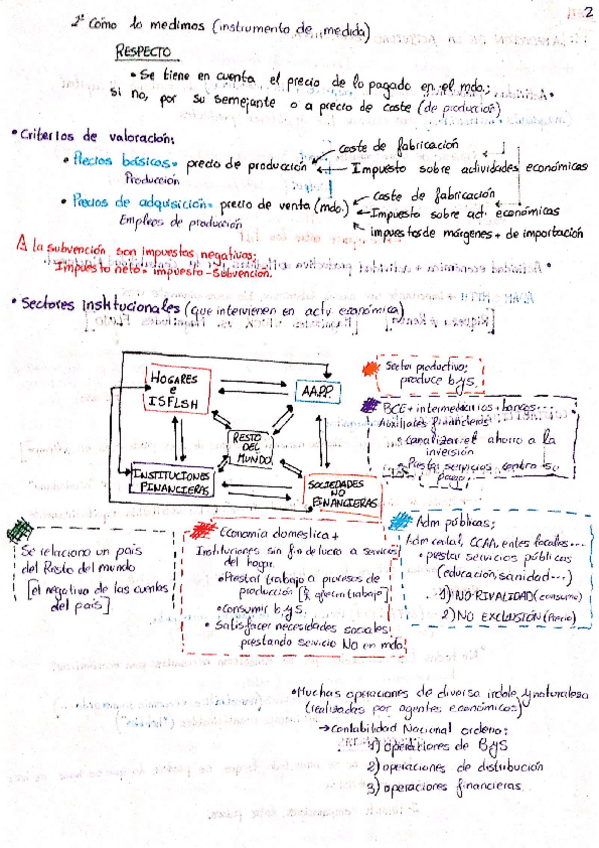 2
2º Cómo lo medimos (instrumento de medida)
RESPECTO
• Se tiene en cuenta el precio de lo pagado en el mdo.;
si no, por su semejante o a precio de coste (de producción)
• Criterios de valoración:
• Precios básicos = precio de producción
coste de fabricación
Impuesto sobre actividades económicas
Producción
• Precios de adquisición = precio de venta (mdo.)
Coste de fabricación
Impuesto sobre act. económicas
impuestos de márgenes + de importación
Empleos de producción
⚠ la subvención son impuestos negativos:
Impuesto neto = impuesto - Subvención.
• Sectores Institucionales (que intervienen en actv económica)
HOGARES
e
ISFLSH
AAPP.
RESTO
DEL
MUNDO
INSTITUCIONES
FINANCIERAS
SOCIEDADES
NO
FINANCIERAS
Sector productivo;
produce b y S.
BCE + intermediarios + bancos...
Auxiliares financieros
• Canalizar el ahorro a la
inversión
Prestar servicios contra su
pago
Se relaciona un país
del Resto del mundo
[el negativo de las cuentas
del país]
Economía doméstica +
Instituciones sin fin de lucro a servicios
del hogar.
• Prestar trabajo a procesos de
producción
• Consumir b y S.
• Satisfacer necesidades sociales
prestando servicio NO en mdo.
Adm públicas;
Adm central, CCAA, entes locales...
• prestar servicios públicos
(educación, sanidad...)
1) NO RIVALIDAD (consumo)
2) NO EXCLUSIÓN (Precio)
• Muchas operaciones de diversa índole y naturaleza
(realizadas por agentes económicos)
→ Contabilidad Nacional ordena:
1) operaciones de B y S
2) operaciones de distribución
3) operaciones financieras.